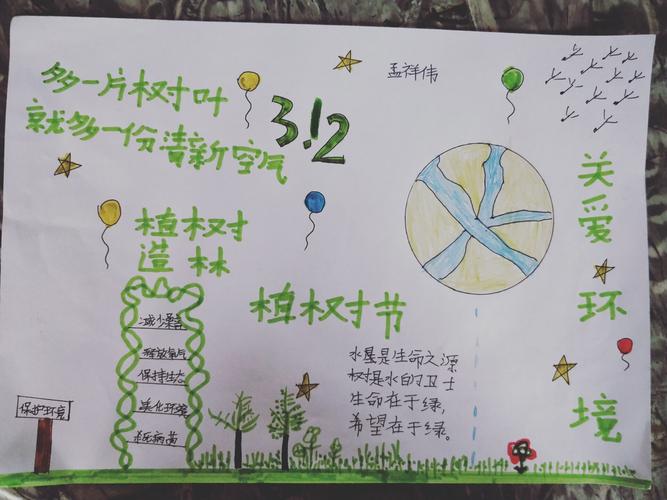 多一片树叶
就多一份清新空气
3.12
孟祥伟
关爱环境
植树
造林
减少噪音
释放氧气
保持生态
美化环境
杀死病菌
植树节
水是生命之源
树是水的卫士
生命在于绿，
希望在于绿。
保护环境